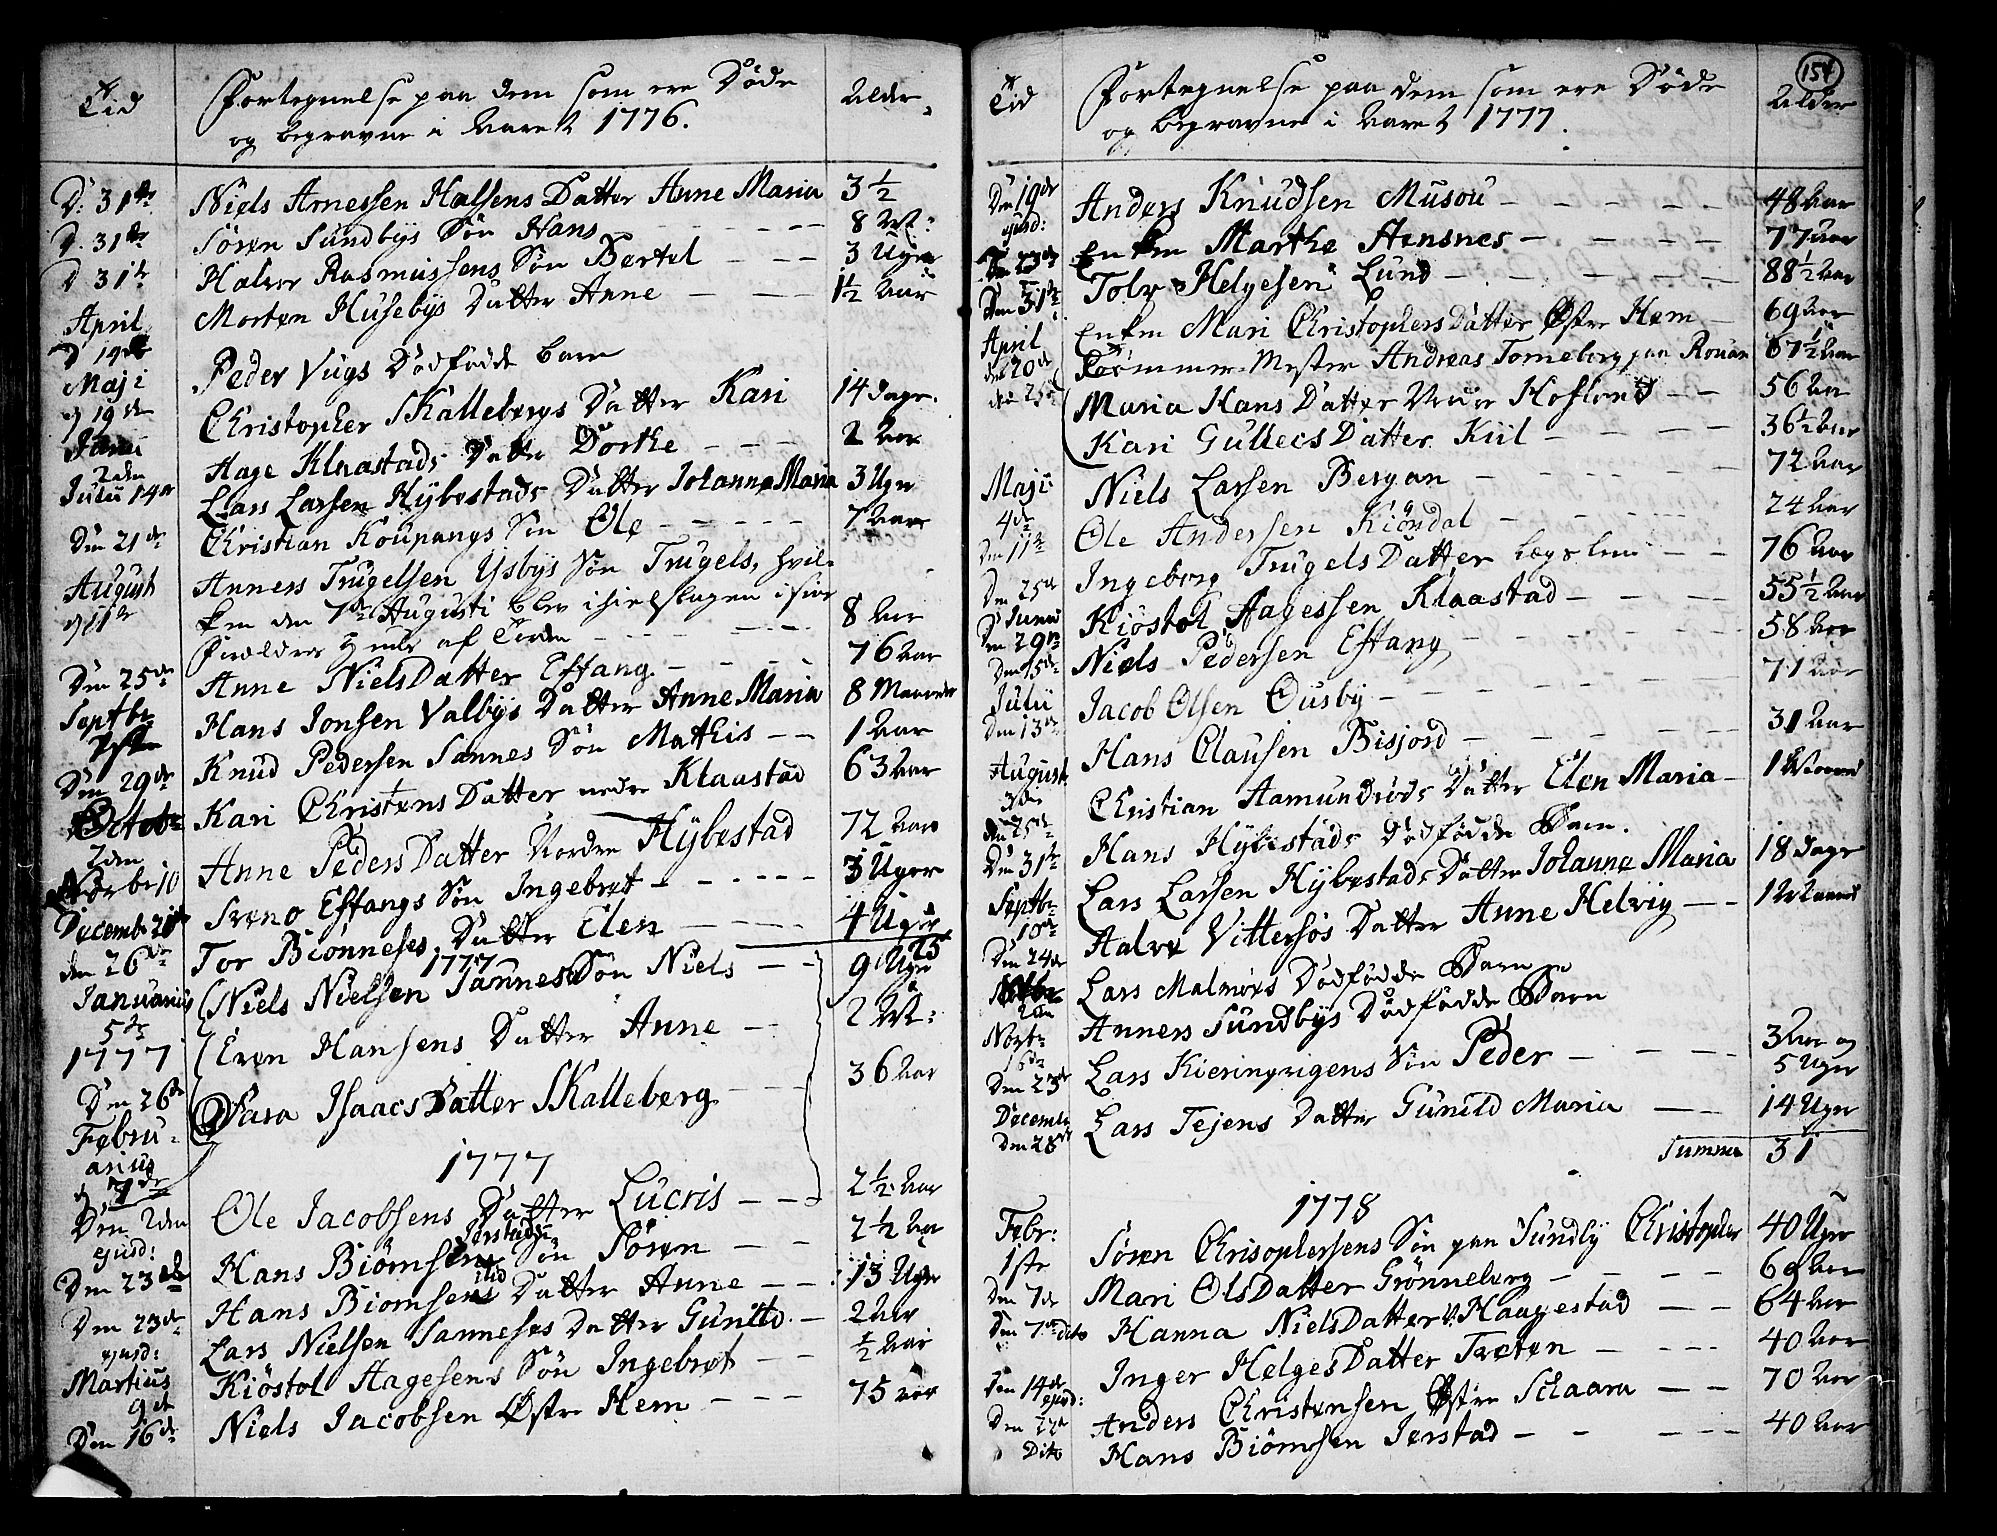 Tid
Fortegnelse paa dem som ere Døde
og begravne i Aaret 1776.
Alder.
D. 31te Niels Arnessen Halsens Datter Anne Maria 3 ½
D. 31te Søren Sundbys Søn Hans 8 M:
D 31te Halvor Rasmussens Søn Bertel 3 Uger
Morten Husebÿs Datter Anne 1½ Aar
April
Peder Vugs Dødfødde barn
Maji
d 19de Christopher Skallebergs Datter Kari 14 dage.
Junii
2den Hage Klaastads Datter Dorthe 2 Aar
Julii 14de Lars Larsen Hÿbestads Datter Johanna Maria 3 Uger
Den 21de Christian Koupangs Søn Ole 7 Aar
August Anners Trugelsen Ysbÿs Søn Trugels, hvil-
ken den 7de Augusti blev ihielslagen i sin
Forældres af Torden 8 Aar
Den 25de Anne Niels Datter Effang 76 Aar
Septbr Hans Jonsen Valbÿs Datter Anne Maria 8 Maaneder
Knud Pedersen Sannes Søn Mathis 1 Aar
Den 29de Kari Christens Datter nedre Klaastad 63 Aar
Octobr
2den Anne Peders Datter Nordre Hÿbestad 72 Aar
10 Sveno Effangs Søn Ingebret 3 Uger
Decembr Tor Biønneses Datter Elen 4 Uger
25
1777
den 26de Niels Nielsen Sannes Søn Niels 9 Uger
Januarius
5te Even Hansens Datter Anne 2 M:
1777
Den 26de Sara Isaacs Datter Skalleberg 36 Aar
Febru-
arius
1777
Den 2den Ole Jacobsens Datter Lucris 2½ Aar
ejusd:
Den 23de Hans Biømsens Jerstads Søn Søren 2½ Aar
Hans Biomsens Datter Anne 13 Uger
Den 23de Lars Nielsen Sanneses Datter Gunild 2 Aar
ejusd:
Martius Kiøstol Hagesens Søn Ingebret ½ Aar
9de
Den 16de Niels Jacobsen Østre Hem 75 aar
154
Tid
Fortegnelse paa dem som ere Døde
og begravne i Aaret 1777.
Alder
Den 19de Anders Knudsen Musou 48 Aar
ejusd:
Enken Marthe Aensnes 77 Aar
Tolv Helgesen Lund 88½ Aar
Den 31te Enken Mari Christophers Datter Østre Hem 69 Aar
April
den 20de Tømmer-Mester Andreas Torneberg paa Rouan 67½ Aar
den 25 Maria Hans Datter Hofland 56 Aar
Kari Gullecs Datter Kiil 36½ Aar
Maji
4de Niels Larsen Bergan 72 Aar
Den 11te Ole Andersen Kiøndal 24 Aar
Den 25de Ingeborg Trugels Datter 76 Aar
Junii
Den 29de Kiøstol Aagessen Klaastad 55½ Aar
Den 15de Niels Pedersen Effang 58 Aar
Julii
Den 13de Jacob Olsen Ousby 71 Aar
Hans Clausen Bisjord 31 Aar
August
3de Christian Aamundrøds Datter Elen Maria 1 Maaned
den 25de Hans Hÿbestads Dødfødde Barn.
Den 31te Lars Larsen Hÿbestads Datter Johanna Maria 18 dage
Septbr
10de Halve Vittersøs Datter Anne Helvig 1 Maaned
Den 24de Lars Malmøes Dødfødde Barn
Anners Sundbys Dødfødde Barn
Novbr
Den 23de Lars Kieringvigens Søn Peder 3 Aar og
5 Uger
Decembr
Den 28de Lars Tejens Datter Gunild Maria 14 Uger
Summa 31
1778
Febr:
1ste Søren Chrisophersens Søn paa Sundby Christopher 40 Uger
Den 7de Mari Ols Datter Grønneberg 69 Aar
Den 7de dito Hanna Niels Datter V: Haagestad 64 Aar
Den 14de Inger Helges Datter Treten 40 Aar
ejusd:
Anders Christensen Østre Schaara 70 Aar
Dito Hans Biømsen Jerstad 40 Aar